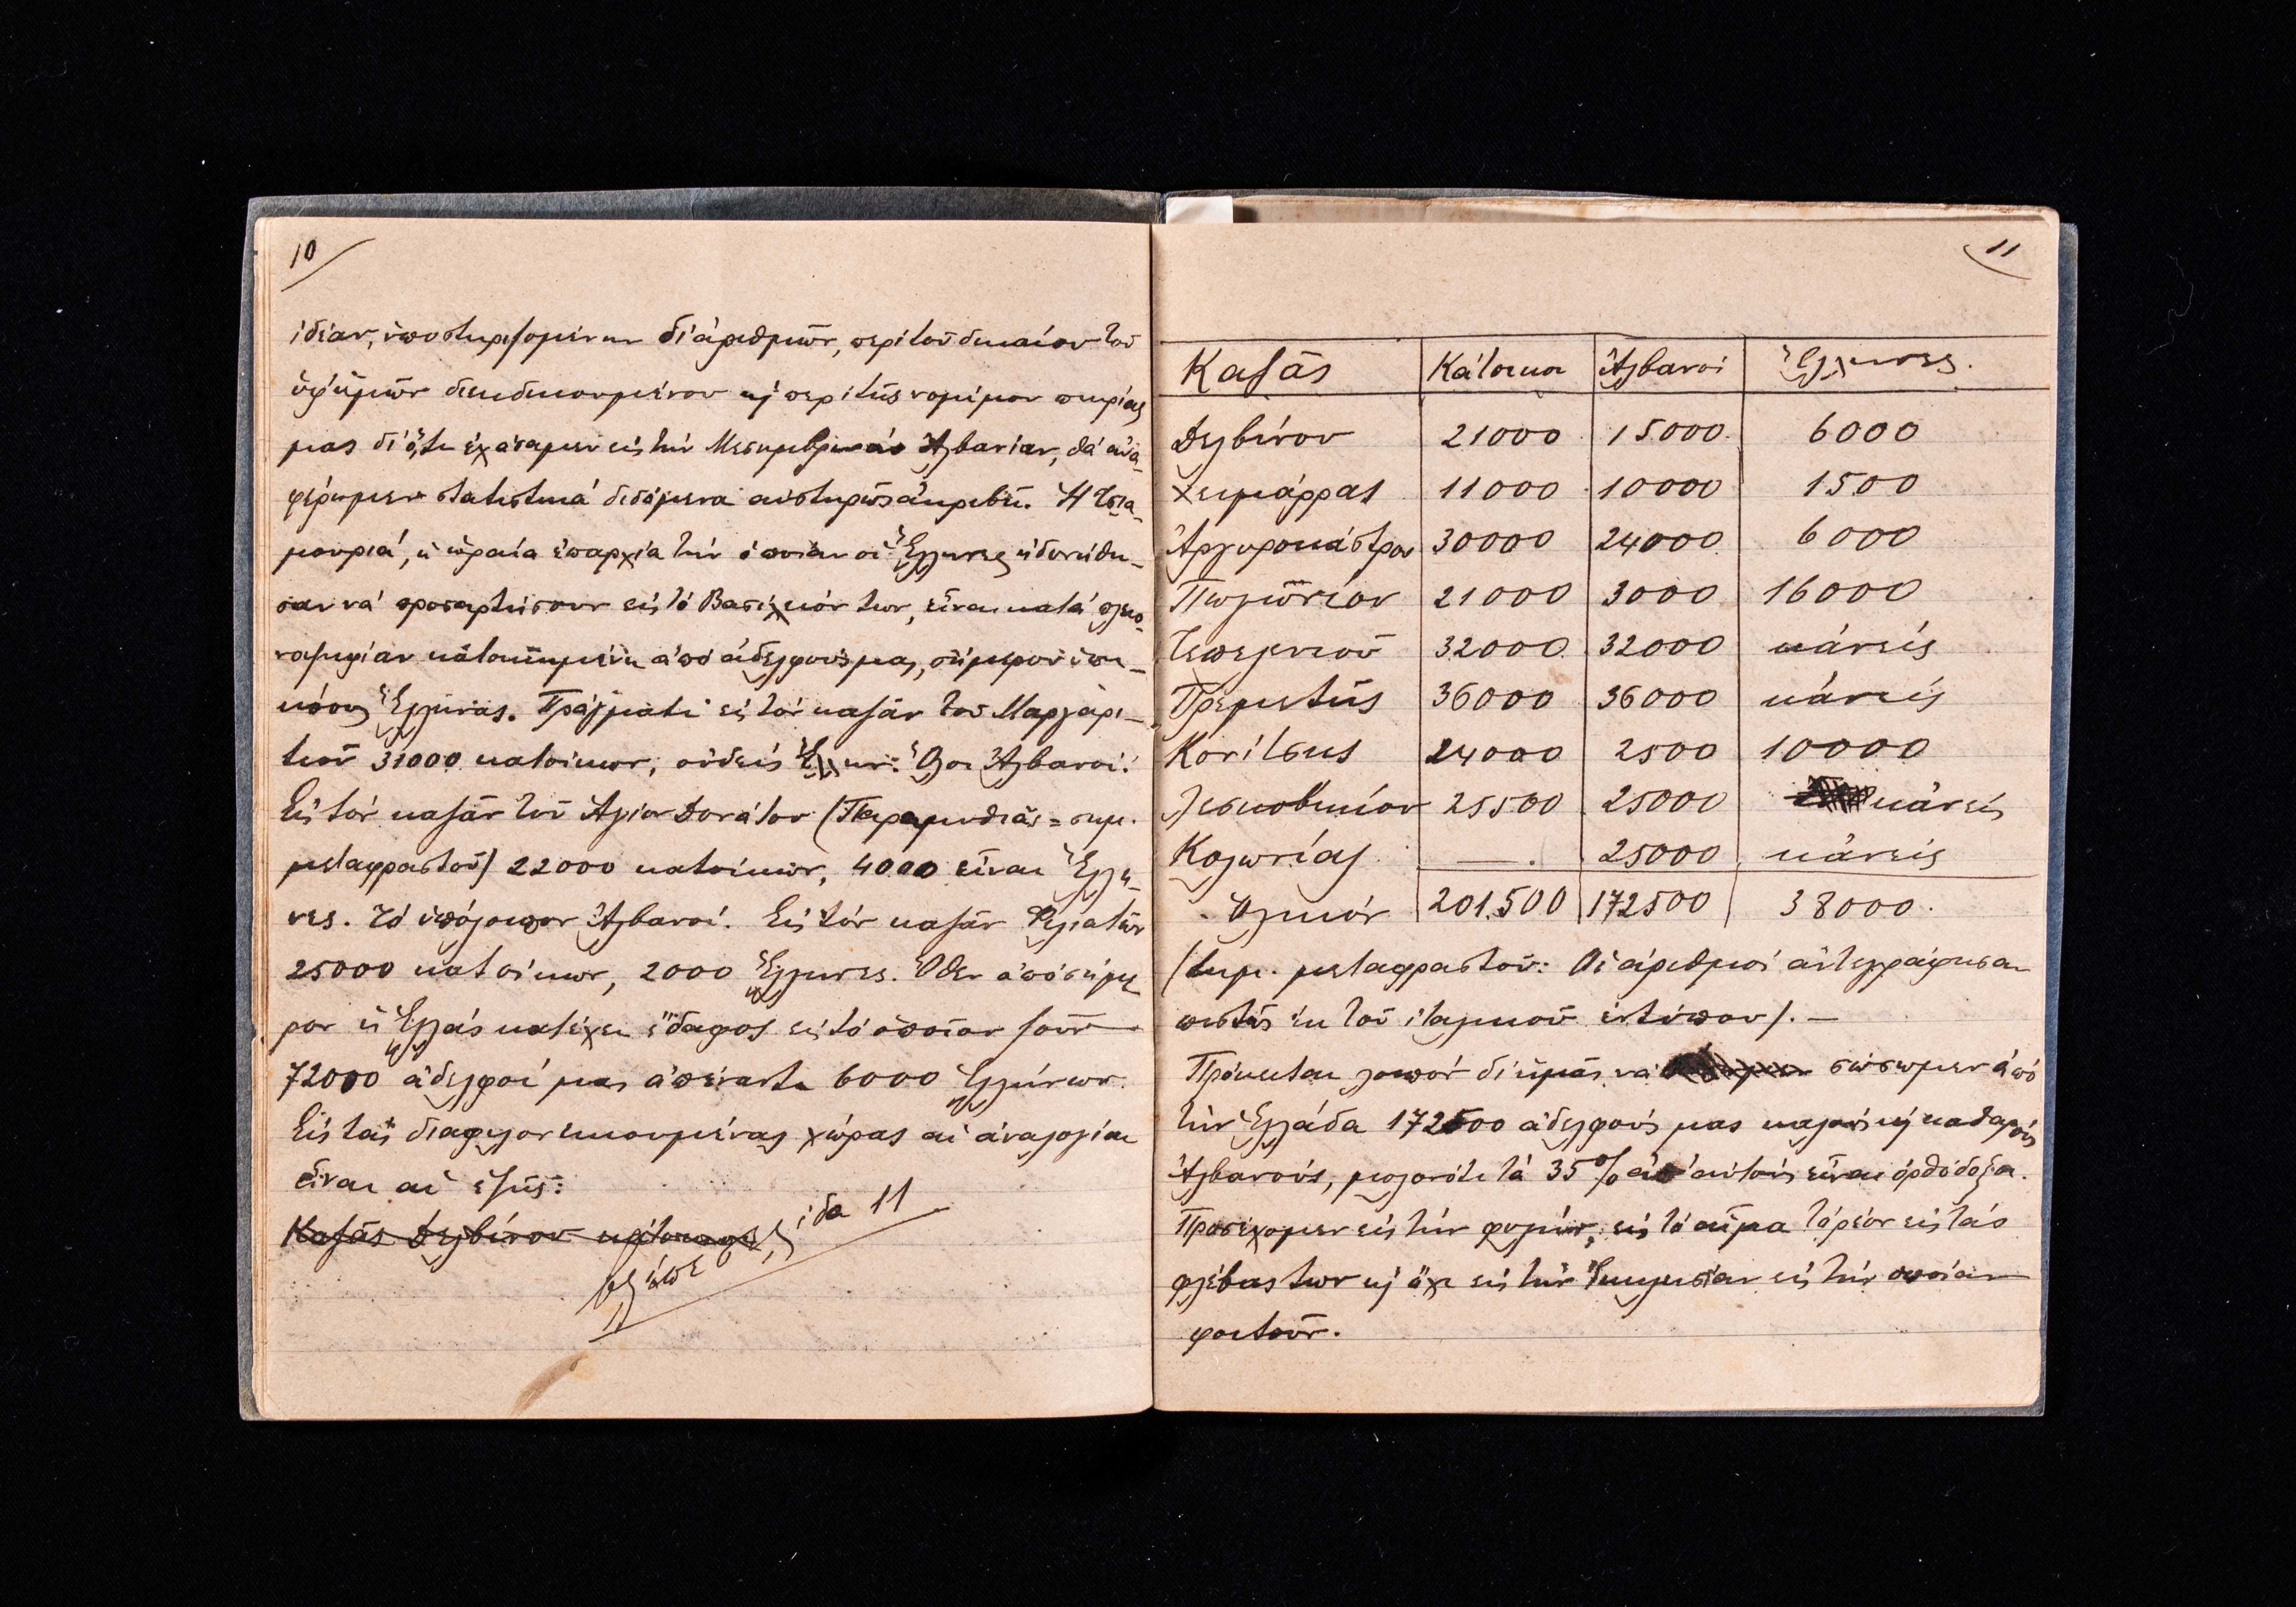 10
ἰδέαν, ὑποστηριζομένην δι' ἀριθμῶν, περὶ τοῦ δικαίου τοῦ
ὑφ' ἡμῶν διεκδικουμένου καὶ περὶ τῆς νομίμου πικρίας
μας δι' ὅ,τι ἐχάσαμεν εἰς τὴν Μεσημβρινὴν Ἀλβανίαν, θὰ ἀνα-
φέρωμεν στατιστικὰ δεδομένα αὐστηρῶς ἀκριβῆ. Ἡ Τσια-
μουριά, ἡ ὡραία ἐπαρχία τὴν ὁποίαν οἱ Ἕλληνες ἠδυνήθη-
σαν νὰ προσαρτήσουν εἰς τὸ Βασίλειόν των, εἶναι κατὰ πλειο-
νοψηφίαν κατοικημένη ἀπὸ ἀδελφούς μας, σήμερον ὑπη-
κόους Ἕλληνας. Πράγματι εἰς τὸν καζᾶν τοῦ Μαργαρι-
τιοῦ 31000 κατοίκων, οὐδεὶς Ἕλλην: Ὅλοι Ἀλβανοί!
Εἰς τὸν καζᾶν τοῦ Ἁγίου Δονάτου (Παραμυθιᾶς = σημ.
μεταφραστοῦ) 22000 κατοίκων, 4000 εἶναι Ἕλλη-
νες. Τὸ ὑπόλοιπον Ἀλβανοί. Εἰς τὸν καζᾶν Φιλιατῶν
25000 κατοίκων, 2000 Ἕλληνες. Ὅθεν ἀπὸ σήμε
ρον ἡ Ἑλλὰς κατέχει ἔδαφος εἰς τὸ ὁποῖον ζοῦν
72000 ἀδελφοί μας ἀπέναντι 6000 Ἑλλήνων.
Εἰς τὰς διαφιλονεικουμένας χώρας αἱ ἀναλογίαι
εἶναι αἱ ἑξῆς:
Καζᾶς Δελβίνου
βλέπε σελίδα 11
11
Καζᾶς Κάτοικοι Ἀλβανοί Ἕλληνες.
Δελβίνου 21000 15000 6000
Χειμάρρας 11000 10000 1500
Ἀργυροκάστρου 30000 24000 6000
Πωγωνίου 21000 3000 16000
Τεπελενίου 32000 32000 κάνεις
Πρεμετῆς 36000 36000 κάνεις
Κονίτσης 24000 2500 10000
Λεσκοβικίου 25500 25000 κάνεις
Κολωνίας —. 25000 κάνεις
Ὁλικόν 201.500 172500 38000.
(Σημ. μεταφραστοῦ: Οἱ ἀριθμοὶ ἀντεγράφησαν
πιστῶς ἐκ τοῦ ἰταλικοῦ ἐντύπου). —
Πρόκειται λοιπὸν δι' ἡμᾶς νὰ σώσωμεν ἀπὸ
τὴν Ἑλλάδα 172500 ἀδελφούς μας καλοὺς καὶ καθαροὺς
Ἀλβανούς, μολονότι τὰ 35 % ἀπ' αὐτοὺς εἶναι ὀρθόδοξοι.
Προσέχομεν εἰς τὴν φυλήν, εἰς τὸ αἷμα τὸ ρέον εἰς τὰς
φλέβας των καὶ ὄχι εἰς τὴν Ἐκκλησίαν εἰς τὴν ὁποίαν
φοιτοῦν.